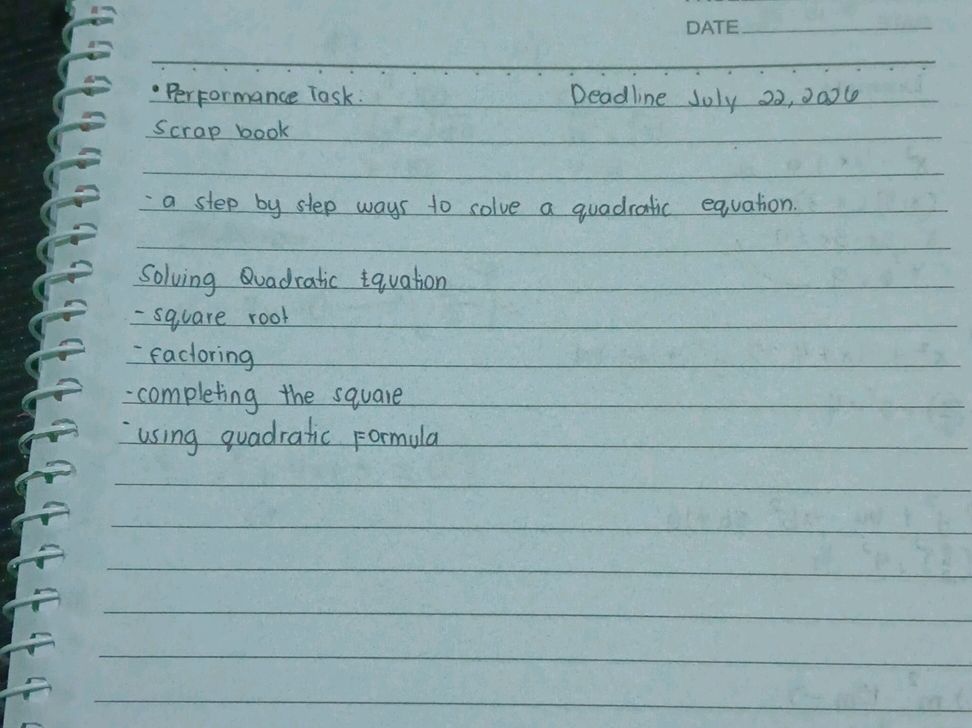 DATE
• Performance Task: Deadline July 22, 2026
Scrap book
- a step by step ways to solve a quadratic equation.
Solving Quadratic Equation
- square root
- factoring
- completing the square
- using quadratic Formula